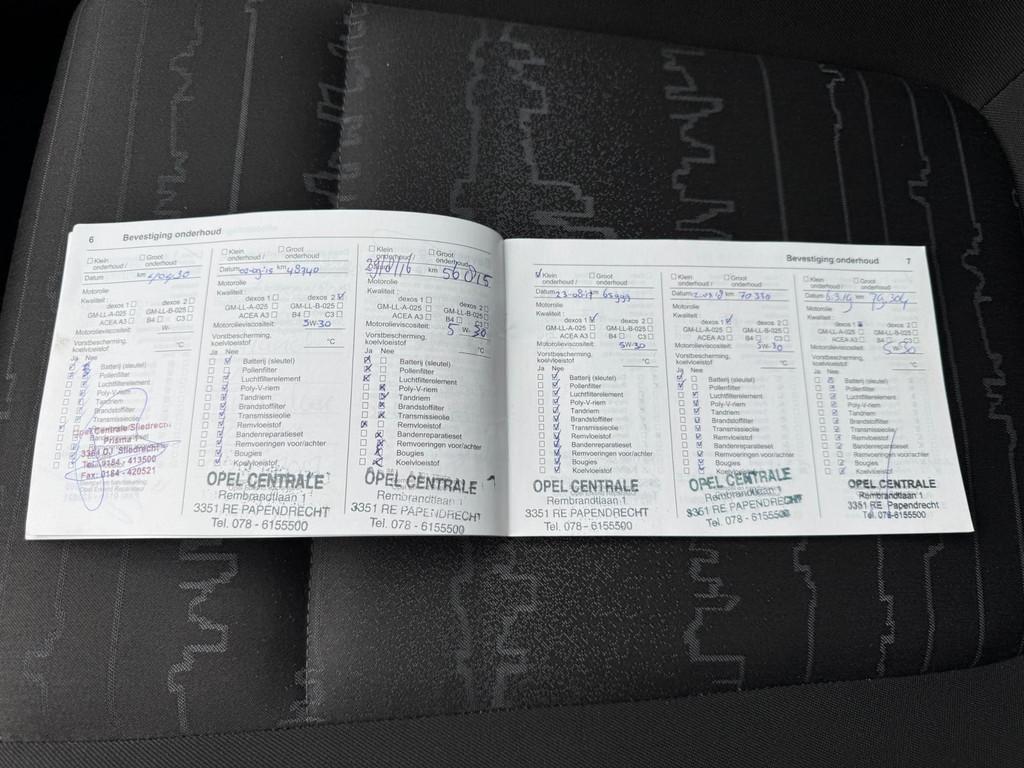 6 Bevestiging onderhoud
Klein onderhoud / Groot onderhoud
Datum km
Motorolie
Kwaliteit :
dexos 1 dexos 2
GM-LL-A-025 GM-LL-B-025
ACEA A3 B4 C3
Motorolieviscositeit: W-
Vorstbescherming, koelvloeistof °C
Ja Nee
Batterij (sleutel)
Pollenfilter
Luchtfilterelement
Poly-V-riem
Tandriem
Brandstoffilter
Transmissieolie
Opel Centrale Sliedrecht
Prisma 1
3364 DJ Sliedrecht
Tel: 0184 - 413500
Fax: 0184 - 420521
Klein onderhoud / Groot onderhoud
Datum 02-09-15 km 48740
Motorolie
Kwaliteit :
dexos 1 dexos 2
GM-LL-A-025 GM-LL-B-025
ACEA A3 B4 C3
Motorolieviscositeit: 5W-30
Vorstbescherming, koelvloeistof °C
Ja Nee
Batterij (sleutel)
Pollenfilter
Luchtfilterelement
Poly-V-riem
Tandriem
Brandstoffilter
Transmissieolie
Remvloeistof
Bandenreparatieset
Remvoeringen voor/achter
Bougies
Koelvloeistof
OPEL CENTRALE
Rembrandtlaan 1
3351 RE PAPENDRECHT
Tel. 078 - 6155500
Klein onderhoud / Groot onderhoud
km 56815
Motorolie
Kwaliteit :
dexos 1 dexos 2
GM-LL-A-025 GM-LL-B-025
ACEA A3 B4 C3
Motorolieviscositeit: 5 W- 30
Vorstbescherming, koelvloeistof °C
Ja Nee
Batterij (sleutel)
Pollenfilter
Luchtfilterelement
Poly-V-riem
Tandriem
Brandstoffilter
Transmissieolie
Remvloeistof
Bandenreparatieset
Remvoeringen voor/achter
Bougies
Koelvloeistof
OPEL CENTRALE
Rembrandtlaan 1
3351 RE PAPENDRECHT
Tel. 078 - 6155500
Bevestiging onderhoud 7
Klein onderhoud / Groot onderhoud
Datum 23-08-17 65999
Motorolie
Kwaliteit :
dexos 1 dexos 2
GM-LL-A-025 GM-LL-B-025
ACEA A3 B4 C3
Motorolieviscositeit: 5W-30
Vorstbescherming, koelvloeistof °C
Ja Nee
Batterij (sleutel)
Pollenfilter
Luchtfilterelement
Poly-V-riem
Tandriem
Brandstoffilter
Transmissieolie
Remvloeistof
Bandenreparatieset
Remvoeringen voor/achter
Bougies
Koelvloeistof
OPEL CENTRALE
Rembrandtlaan 1
3351 RE PAPENDRECHT
Tel. 078 - 6155500
Klein onderhoud / Groot onderhoud
Datum km 70330
Motorolie
Kwaliteit :
dexos 1 dexos 2
GM-LL-A-025 GM-LL-B-025
ACEA A3 B4 C3
Motorolieviscositeit: 5W-30
Vorstbescherming, koelvloeistof °C
Ja Nee
Batterij (sleutel)
Pollenfilter
Luchtfilterelement
Poly-V-riem
Tandriem
Brandstoffilter
Transmissieolie
Remvloeistof
Bandenreparatieset
Remvoeringen voor/achter
Bougies
Koelvloeistof
OPEL CENTRALE
Rembrandtlaan 1
3351 RE PAPENDRECHT
Tel. 078 - 6155500
Klein onderhoud / Groot onderhoud
Datum 6.3.19 km 79.304
Motorolie
Kwaliteit :
dexos 1 dexos 2
GM-LL-A-025 GM-LL-B-025
ACEA A3 B4 C3
Motorolieviscositeit: 5W30
Vorstbescherming, koelvloeistof °C
Ja Nee
Batterij (sleutel)
Pollenfilter
Luchtfilterelement
Poly-V-riem
Tandriem
Brandstoffilter
Transmissieolie
Remvloeistof
Bandenreparatieset
Remvoeringen voor/achter
Bougies
Koelvloeistof
OPEL CENTRALE
Rembrandtlaan 1
3351 RE Papendrecht
Tel. 078-6155500